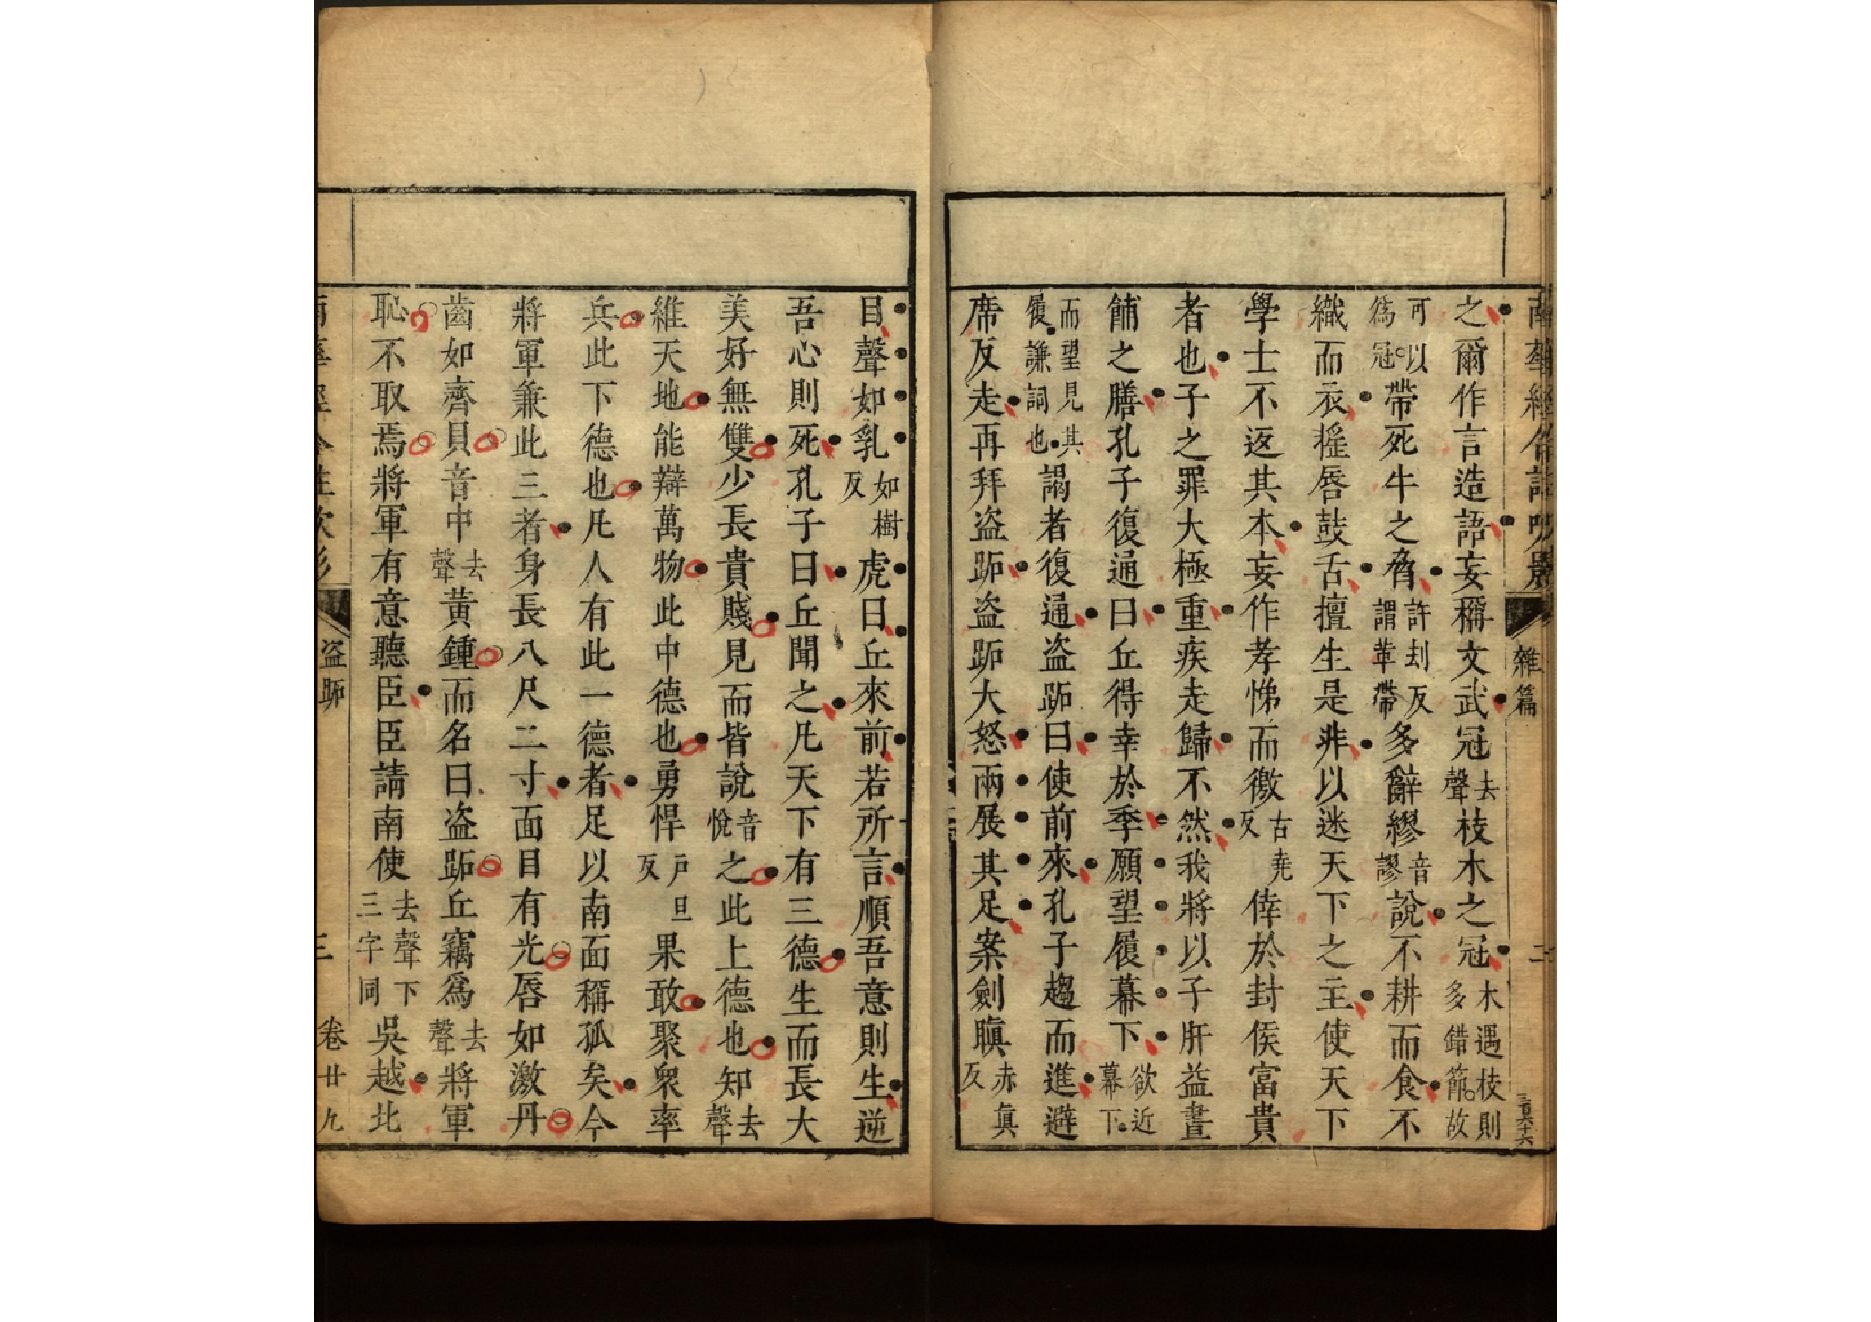 之爾作言造語妄稱文武冠去聲枝木之冠木遇枝則多錯節故
可以為冠帶死牛之脅許刦反謂革帶多辭繆音謬說不耕而食不
織而衣搖唇鼓舌擅生是非以迷天下之主使天下
學士不返其本妄作孝悌而徼古堯反倖於封侯富貴
者也子之罪大極重疾走歸不然我將以子肝益晝
餔之膳孔子復通曰丘得幸於季願望履幕下欲近幕下
而望見其履謙詞也謁者復通盜跖曰使前來孔子趨而進避
席反走再拜盜跖盜跖大怒兩展其足案劍瞋赤真反
目聲如乳如樹反虎曰丘來前若所言順吾意則生逆
吾心則死孔子曰丘聞之凡天下有三德生而長大
美好無雙少長貴賤見而皆說音悅之此上德也知去聲
維天地能辯萬物此中德也勇悍戶旦反果敢聚衆率
兵此下德也凡人有此一德者足以南面稱孤矣今
將軍兼此三者身長八尺二寸面目有光唇如激丹
齒如齊貝音中去聲黃鍾而名曰盜跖丘竊為去聲將軍
恥不取焉將軍有意聽臣臣請南使去聲下三字同吳越北
雜篇
二
盜跖
三
卷廿九